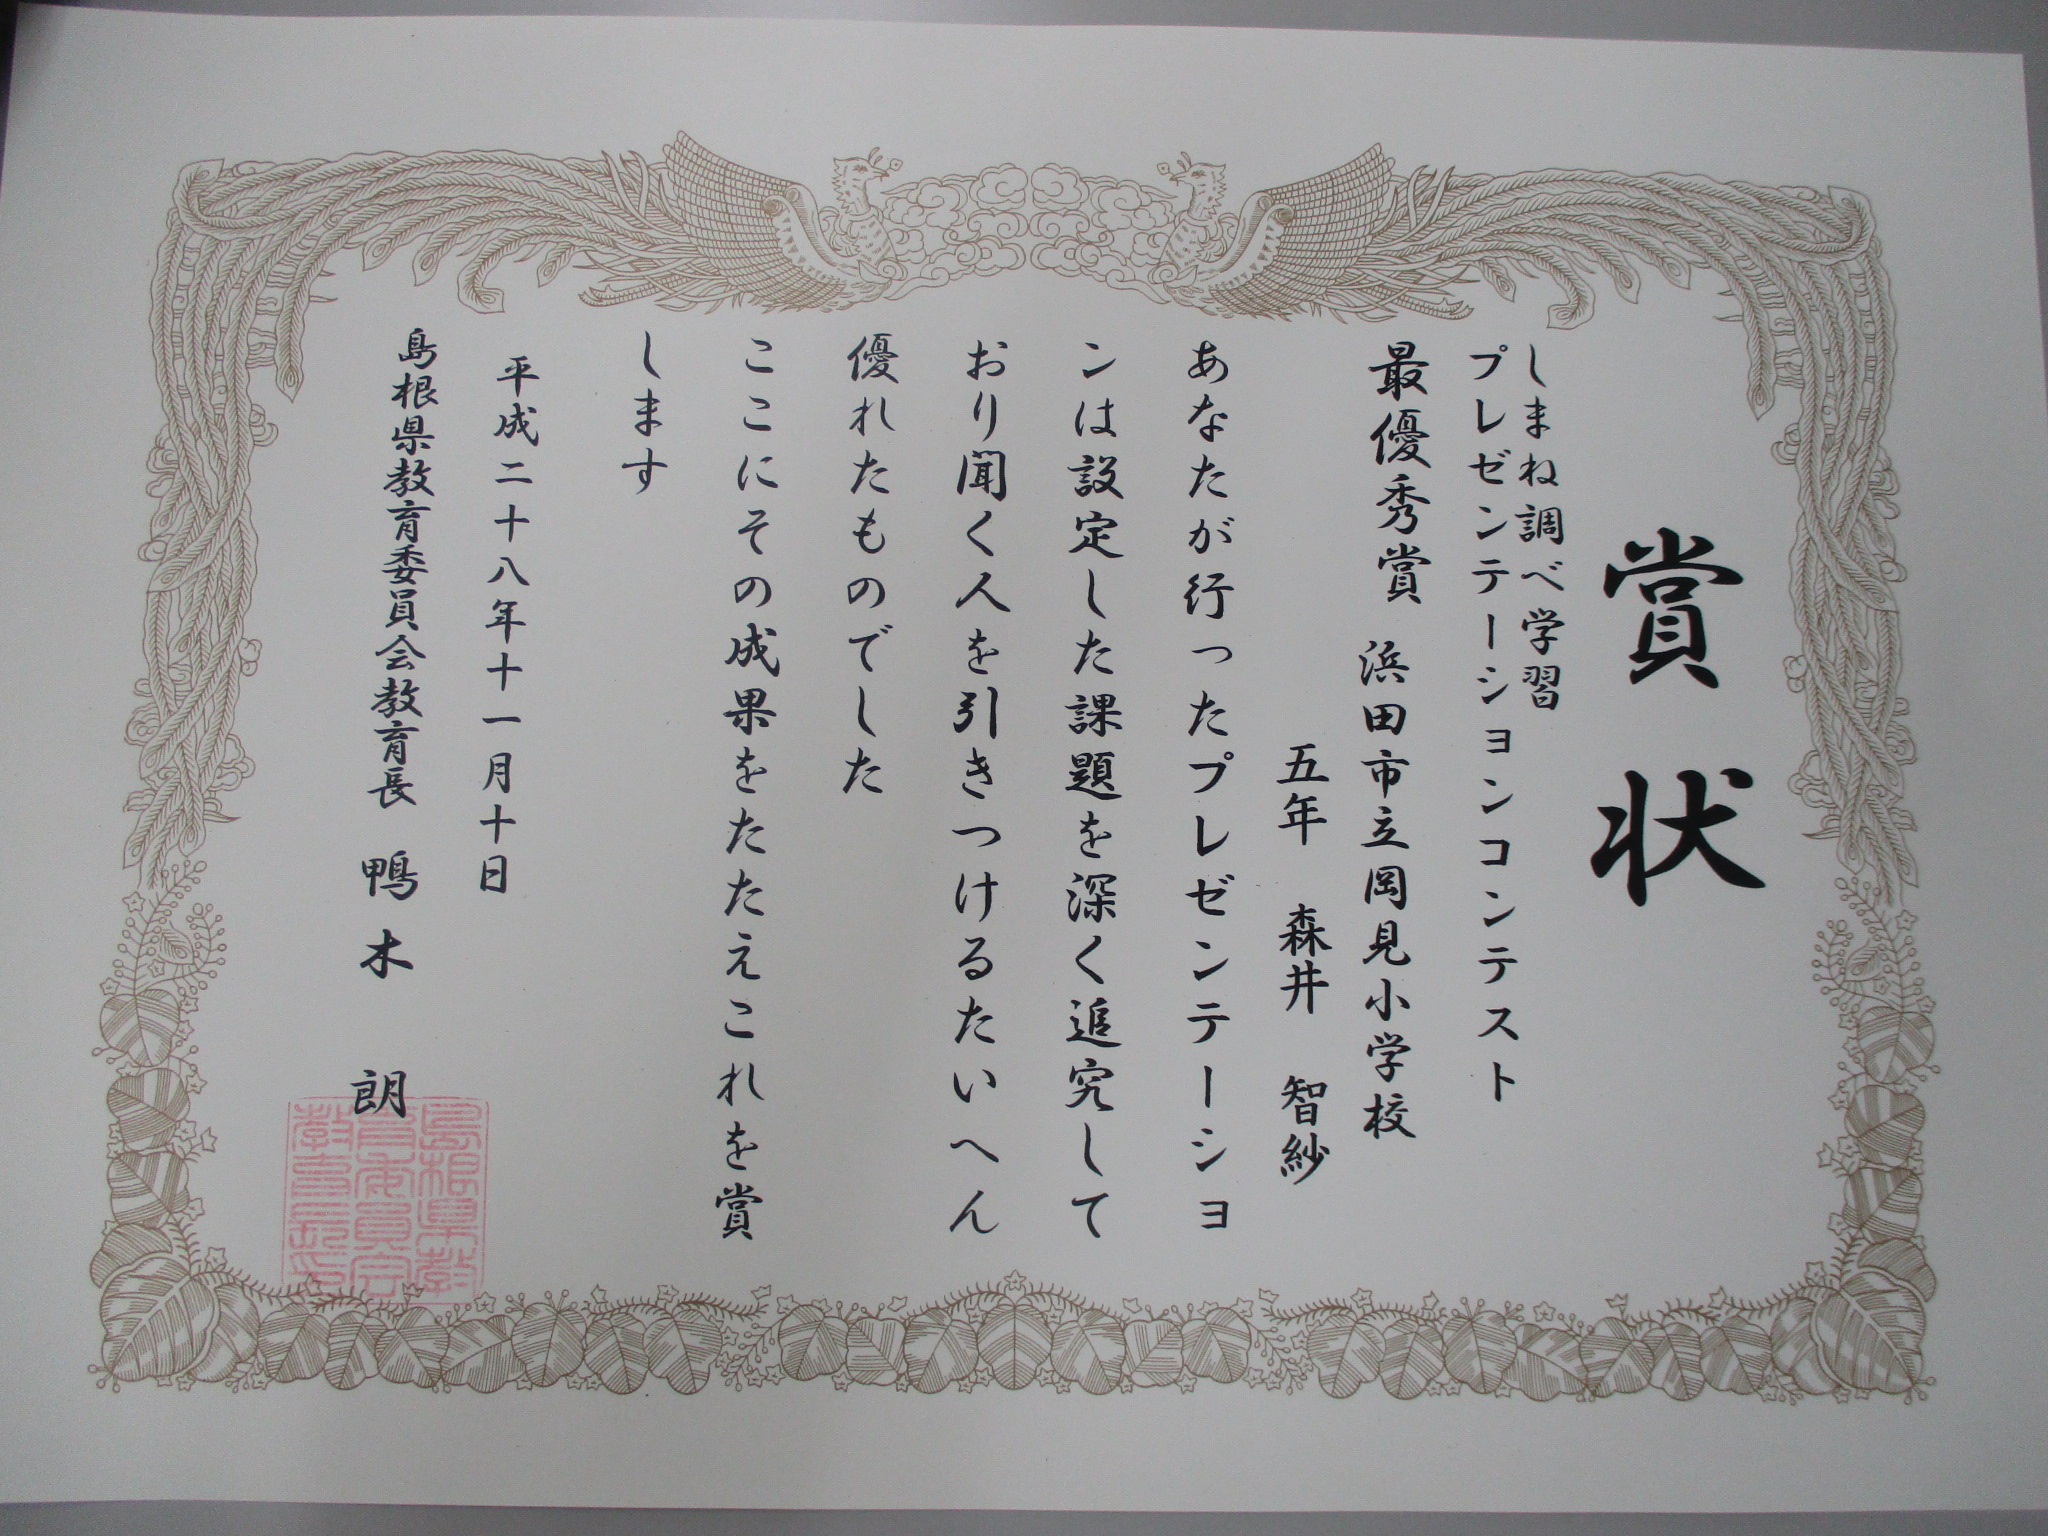 賞状
しまね調べ学習
プレゼンテーションコンテスト
最優秀賞 浜田市立岡見小学校
五年 森井 智紗
あなたが行ったプレゼンテーショ
ンは設定した課題を深く追究して
おり聞く人を引きつけるたいへん
優れたものでした
ここにその成果をたたえこれを賞
します
平成二十八年十一月十日
島根県教育委員会教育長 鴨木 朗
島根県教
育委員会
教育長印